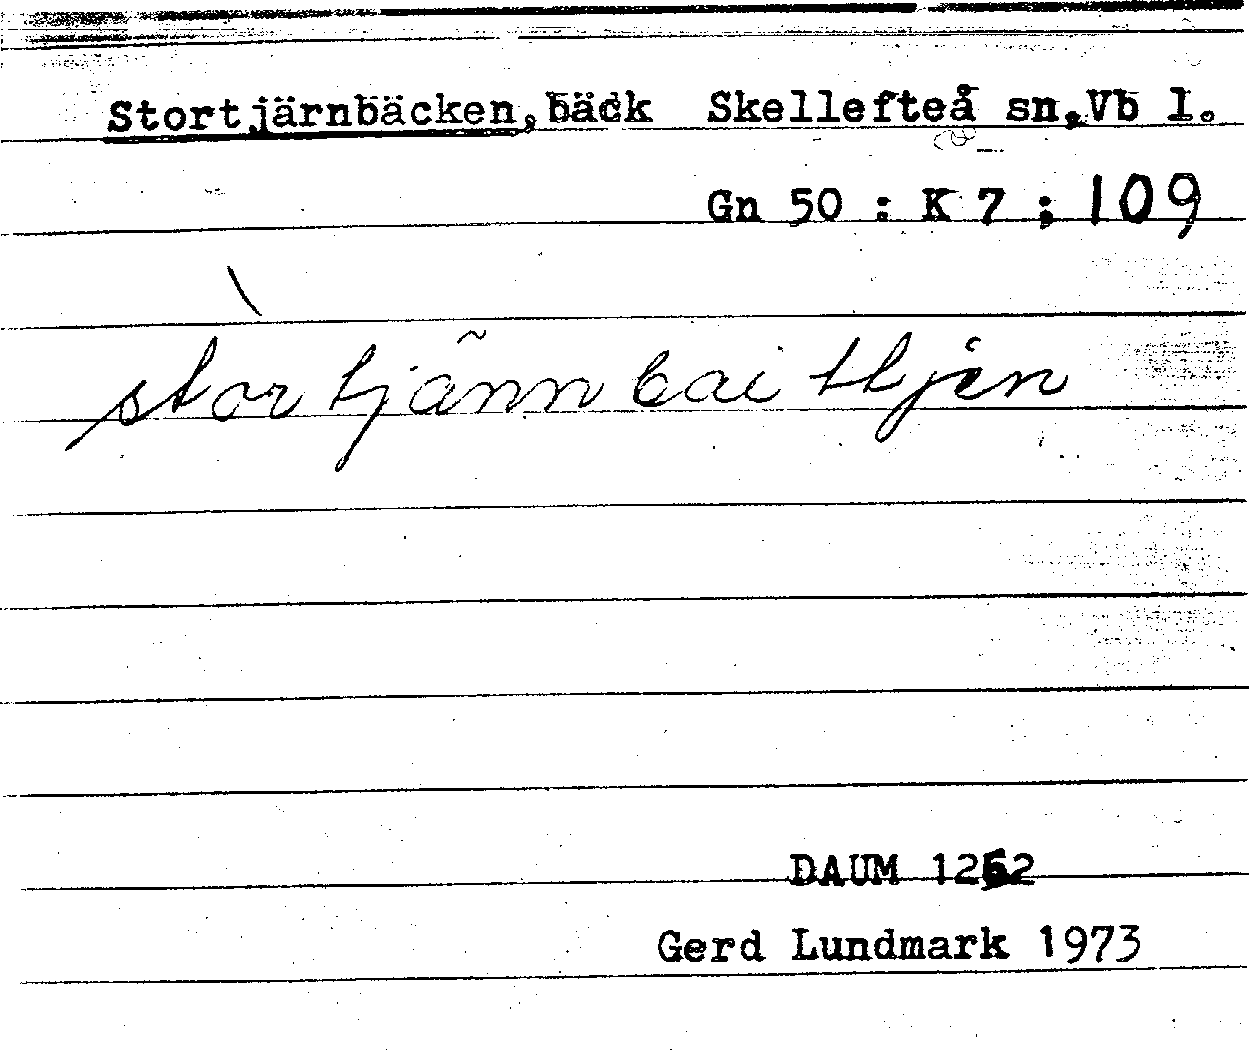 Stortjärnbäcken, bäck Skellefteå sn. Vb l.
Gn 50 : K 7 ; 109
stòrtjãnnbaittjen
DAUM
Gerd Lundmark 1973